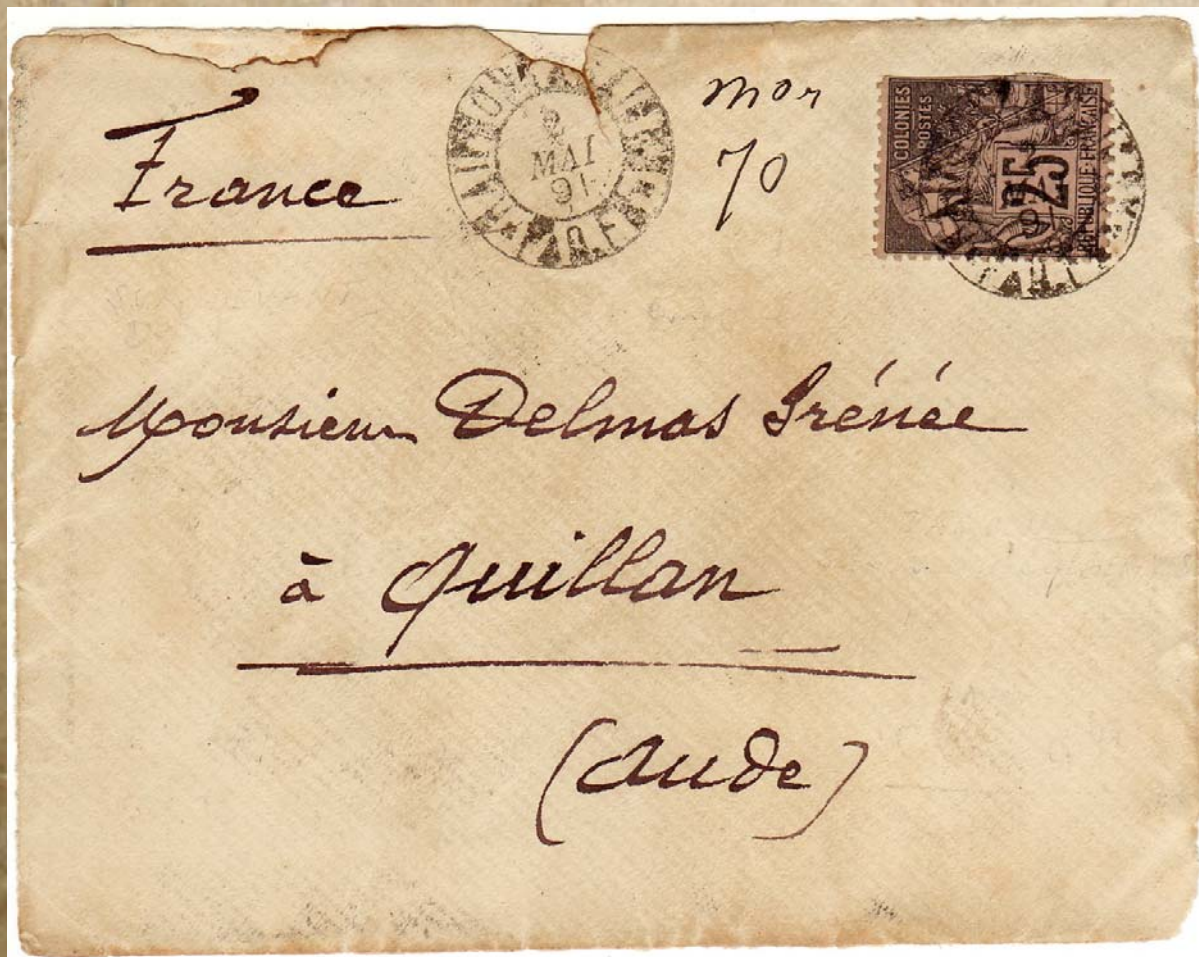 France
2
MAI
91
mor
70
COLONIES
POSTES
25
REPUBLIQUE FRANCAISE
Monsieur Delmas Irénée
à Quillan
(Aude)